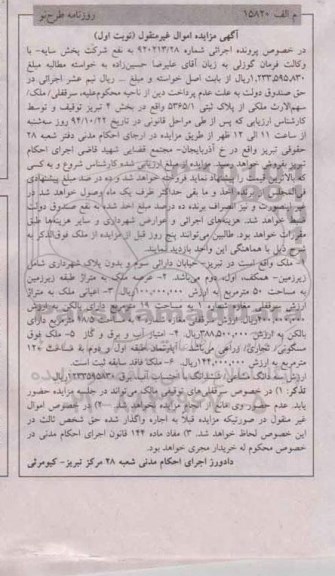 م الف ۱۵۸۲۰ روزنامه طرح‌نو
آگهی مزایده اموال غیرمنقول (نوبت اول)
در خصوص پرونده اجرائی شماره ۹۲۰۲۱۳/۲۸ به نفع شرکت پخش سایه- با
وکالت فرمان گوزلی به زیان آقای علیرضا حسین‌زاده به خواسته مطالبه مبلغ
۱,۲۳۳,۵۹۵,۸۳۰ریال از بابت اصل خواسته و مبلغ ... ریال نیم عشر اجرائی در
حق صندوق دولت به علت عدم پرداخت دین از ناحیه محکوم‌علیه، سرقفلی/ ملک/
سهم‌الارث ملکی از پلاک ثبتی ۵۳۶۵/۱ واقع در بخش ۴ تبریز توقیف و توسط
کارشناس ارزیابی که پس از طی مراحل قانونی در تاریخ ۹۴/۱۰/۲۲ روز سه‌شنبه
از ساعت ۱۱ الی ۱۲ ظهر از طریق مزایده در اجرای احکام مدنی دفتر شعبه ۲۸
حقوقی تبریز واقع در خ آذربایجان- مجتمع قضایی شهید قاضی اجرای احکام
تبریز بفروش خواهد رسید. مزایده از مبلغ ارزیابی شده کارشناس شروع و به کسی
که بالاترین قیمت را پیشنهاد نماید فروخته خواهد شد و ده در صد مبلغ پیشنهادی
فی‌المجلس از برنده اخذ و ما بقی حداکثر ظرف یک ماه وصول خواهد شد در
غیر اینصورت و نیز انصراف برنده ده درصد مبلغ اخذ شده به نفع صندوق دولت
ضبط خواهد شد. هزینه‌های اجرائی و عوارض شهرداری و سایر هزینه‌ها طبق
مقررات خواهد بود. طالبین می‌توانند پنج روز قبل از مزایده از ملک فوق‌الذکر به
شرح ذیل با هماهنگی این واحد بازدید نمایند.
ملک واقع است در تبریز- خیابان دارائی سوم و بدون پلاک شهرداری شامل
زیرزمین- همکف، اول، دوم می‌باشد. ۲- عرصه ملک به متراژ طبقه زیرزمین
به مساحت ۵۰ مترمربع به ارزش ریال ۳- اعیانی ملک به متراژ
ارزش سرقفلی مغازه شماره ۱ به مساحت ۱۹ مترمربع دارای بالکن به ارزش
ریال ارزش سرقفلی مترمربع دارای
بالکن به ارزش ۳۸۸,۵۰۰,۰۰۰ریال ۴- امتیاز آب و برق و گاز ۵- ملک فوق
مسکونی/ تجاری/ زراعی می‌باشد طبقه اول و دوم به مساحت ۱۲۰
مترمربع به ارزش ریال ۶- ملک فاقد سابقه ثبت است.
ارزش سه دانگ مشاعی ششدانگ با احتساب آب، برق ۱۲۳۳۵۹۵۸۳۰ریال
تذکر: ۱) در خصوص سرقفلی‌های توقیفی مالک می‌تواند در جلسه مزایده حضور
یابد. عدم حضور وی مانع از انجام مزایده نخواهد شد. ۲) در خصوص اموال
غیر منقول در صورتیکه مزایده قبلا به اجاره واگذار شده حق شخص ثالث در
این خصوص لحاظ خواهد شد. ۳) مفاد ماده ۱۴۴ قانون اجرای احکام مدنی در
خصوص محکوم له خریدار مجری خواهد بود.
دادورز اجرای احکام مدنی شعبه ۲۸ مرکز تبریز- کیومرثی